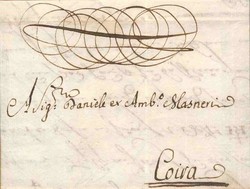 A Sig.ri Daniele ex Amb.e Masneri
Coira